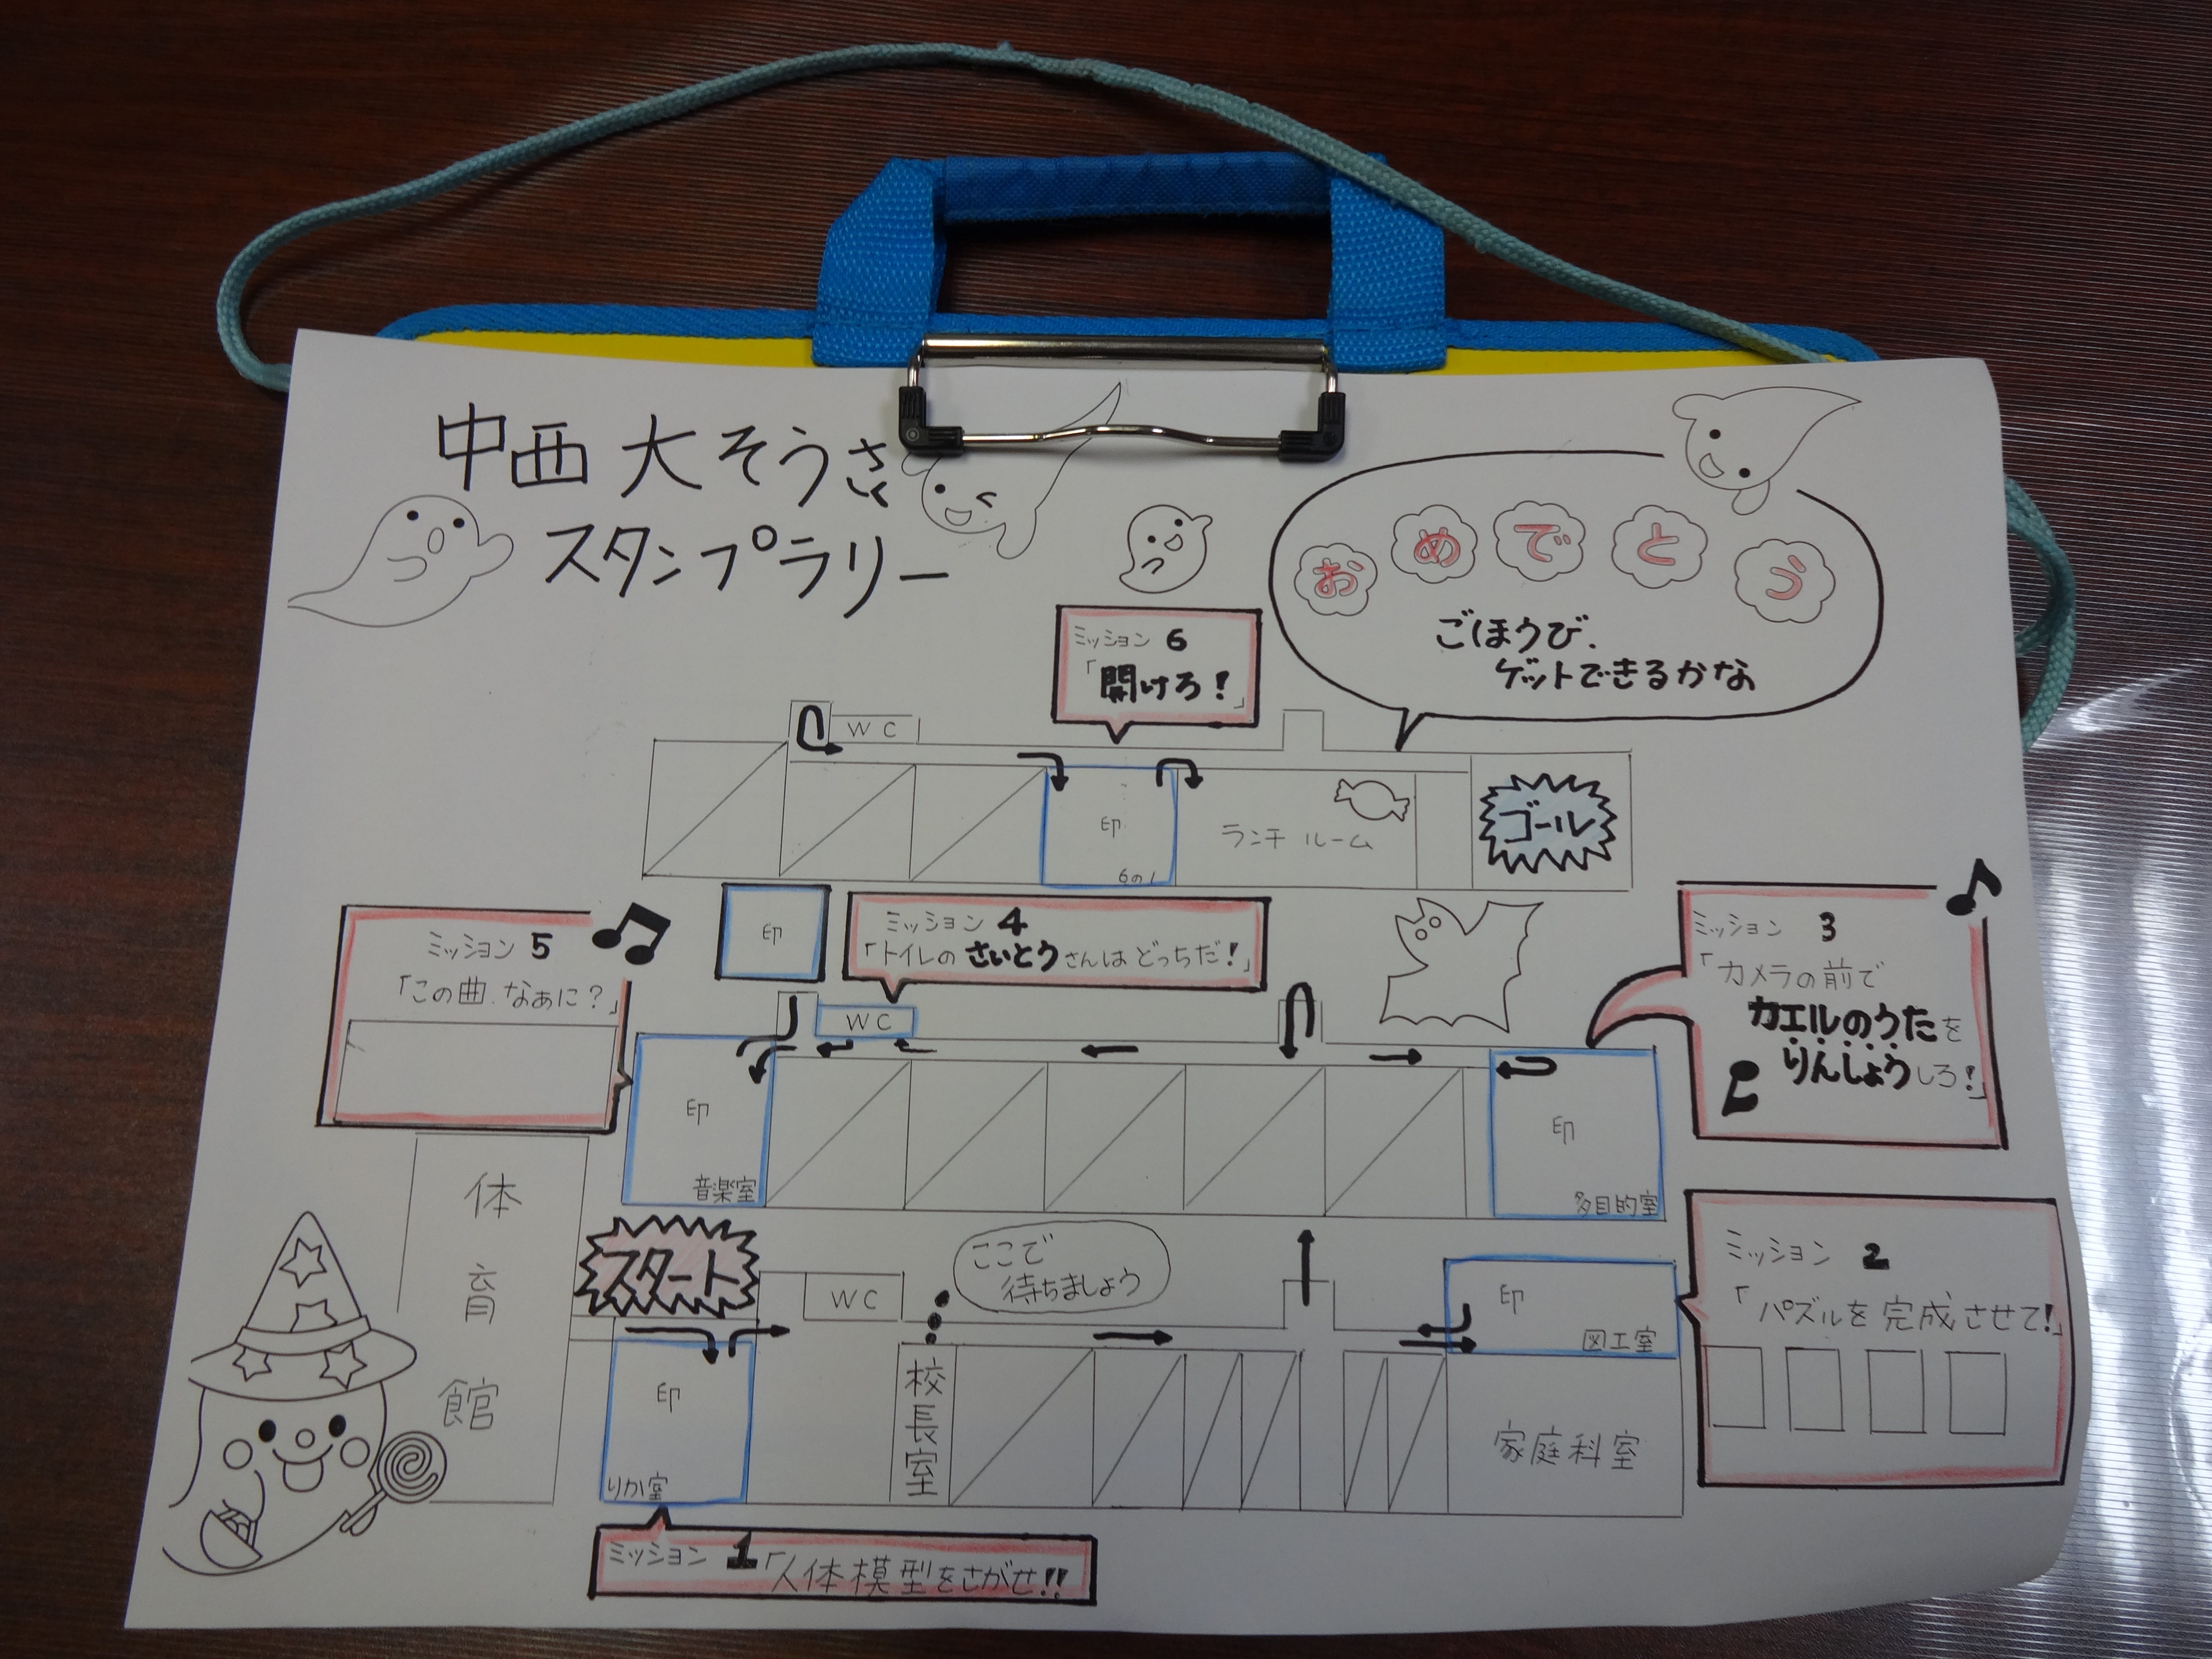 中西 大そうさく
スタンプラリー
おめでとう
ごほうび、
ゲットできるかな
ミッション 6
「開けろ!」
WC
印
6の1
ランチ ルーム
ゴール
ミッション 5
「この曲、なぁに?」
印
ミッション 4
「トイレの さいとう さんは どっちだ!」
ミッション 3
「カメラの前で
カエルのうたを
りんしょうしろ!」
WC
印
音楽室
印
多目的室
体育館
スタート
WC
ここで
待ちましょう
印
図工室
ミッション 2
「パズルを 完成させて!」
印
りか室
校長室
家庭科室
ミッション 1「人体模型をさがせ!!